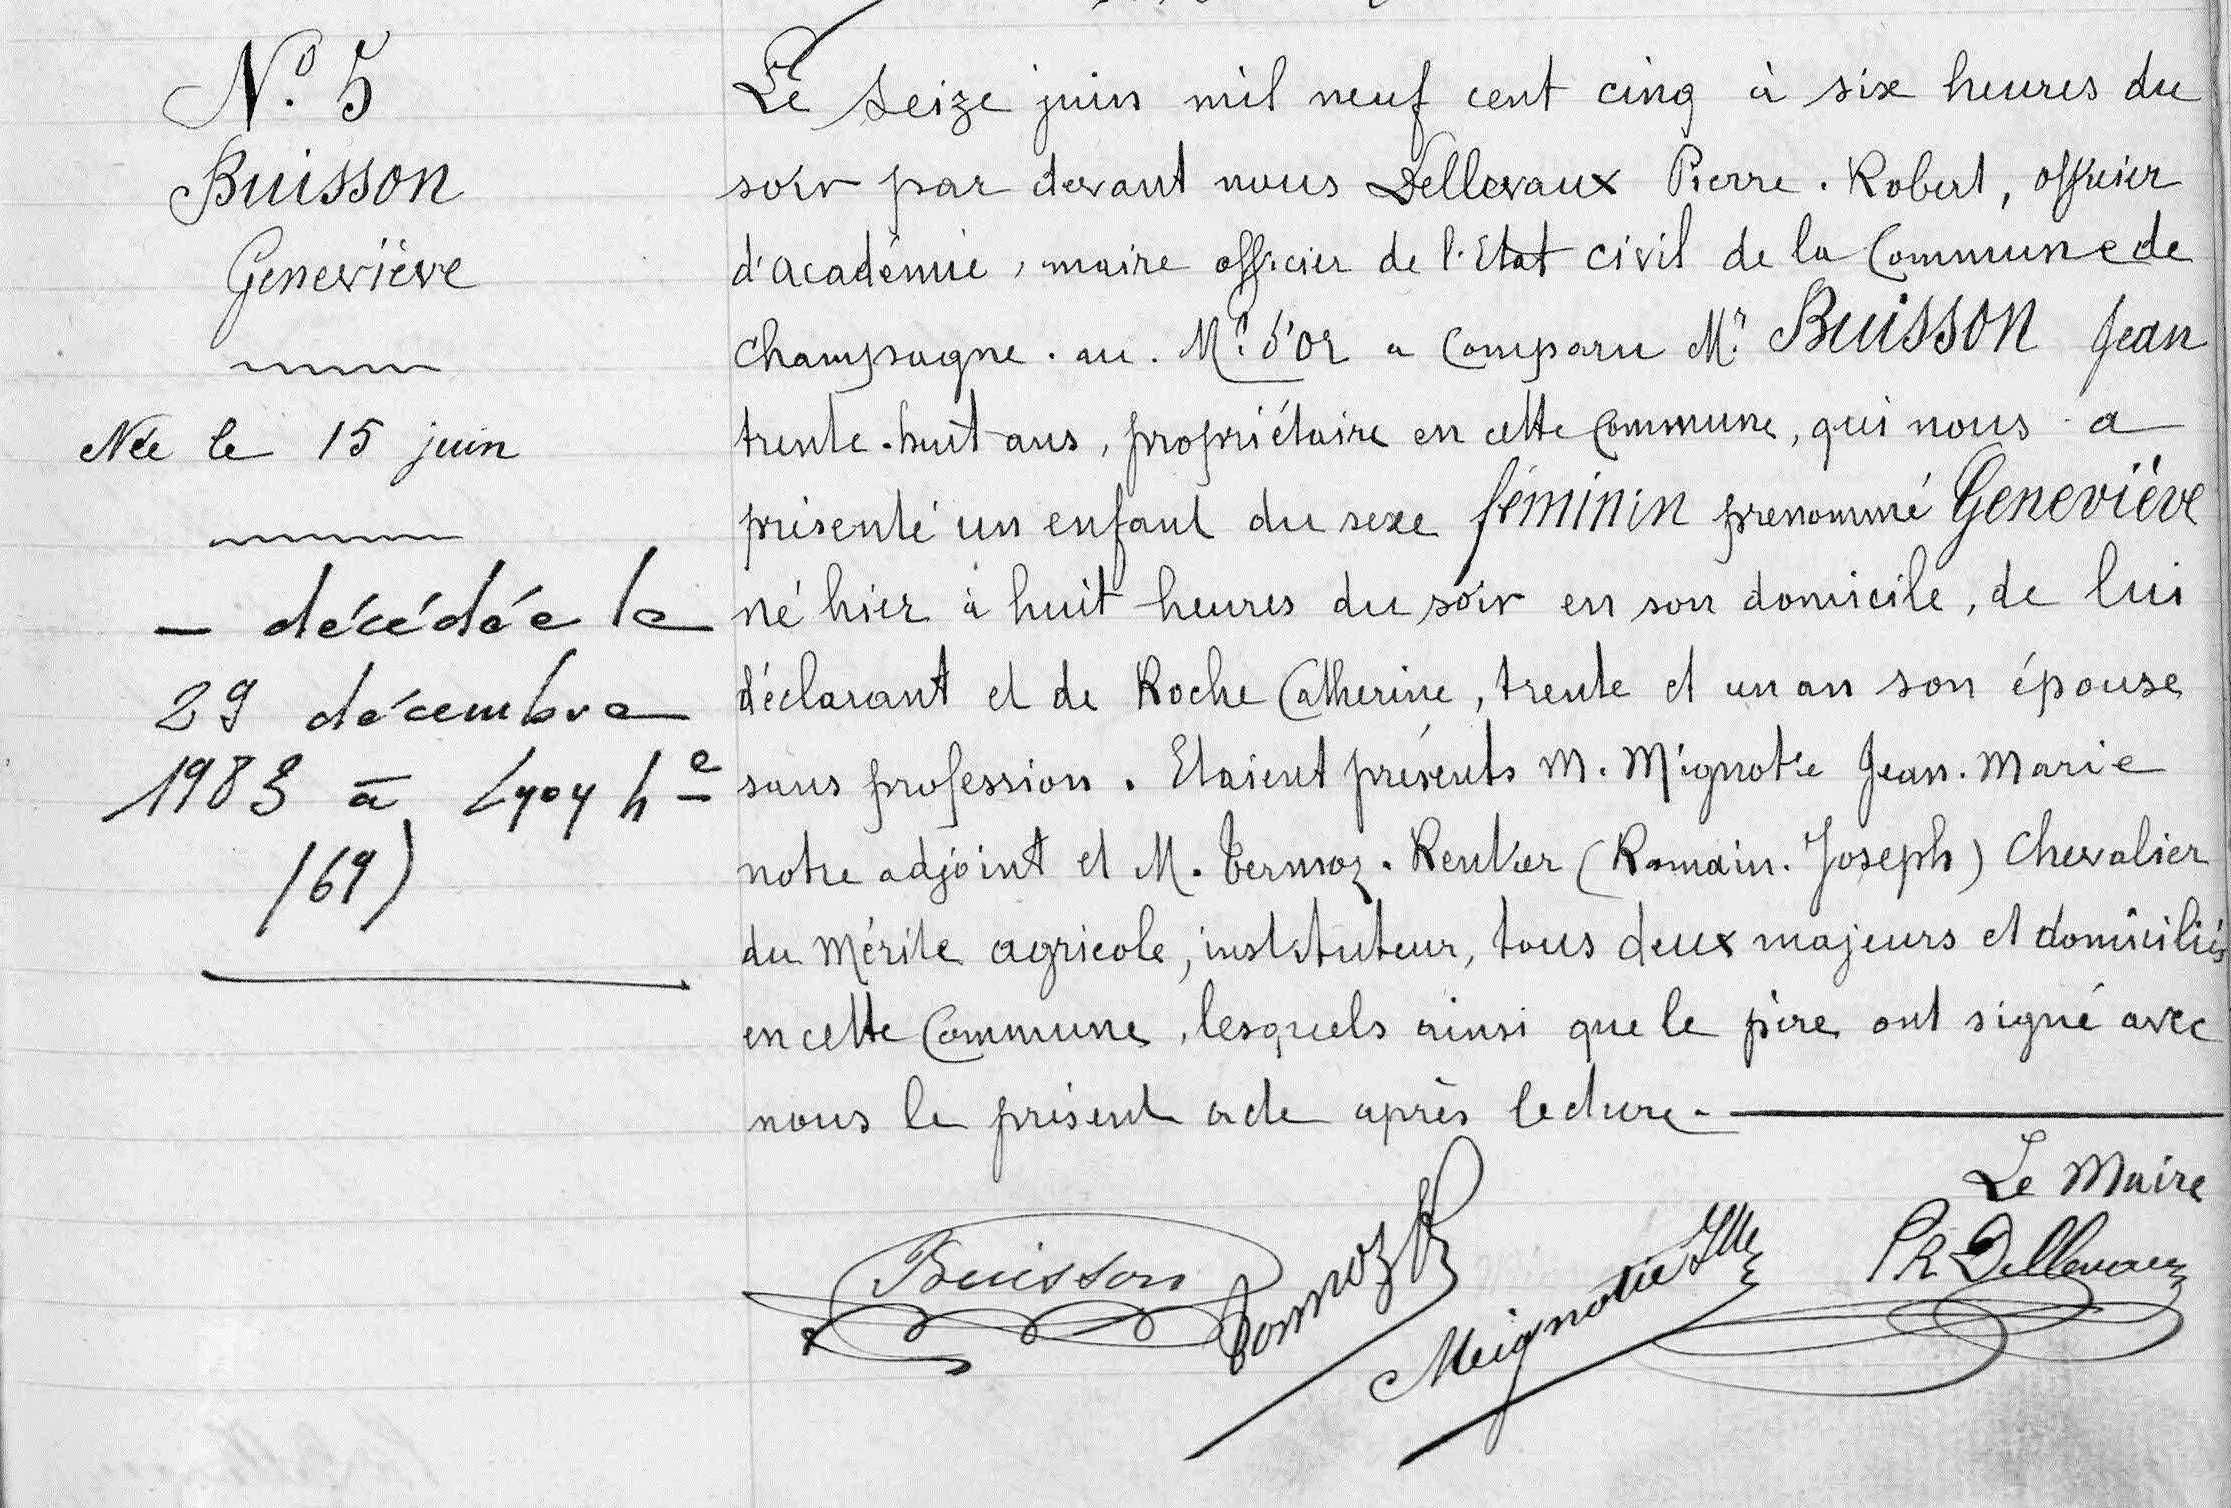 N.º 5
Buisson
Geneviève
Née le 15 juin
— décédée le
29 décembre
1983 à Lyon 4e
(69)
Le Seize juin mil neuf cent cinq à six heures du
soir par devant nous Dellevaux Pierre. Robert, officier
d'académie, maire officier de l'Etat civil de la Commune de
Champagne. au. Mt d'Or a Comparu Mr BUISSON Jean
trente-huit ans, propriétaire en cette Commune, qui nous a
présenté un enfant du sexe féminin prénommé Geneviève
né hier à huit heures du soir en son domicile, de lui
déclarant et de Roche Catherine, trente et un an son épouse
sans profession. Etaient présents M. Mignotie Jean. Marie
notre adjoint et M. Termoz. Renvier (Romain. Joseph) Chevalier
du Mérite agricole, instituteur, tous deux majeurs et domiciliés
en cette Commune, lesquels ainsi que le père ont signé avec
nous le présent acte après lecture.
Le Maire
Buisson
Termoz R
Meignotie
PR Dellevaux